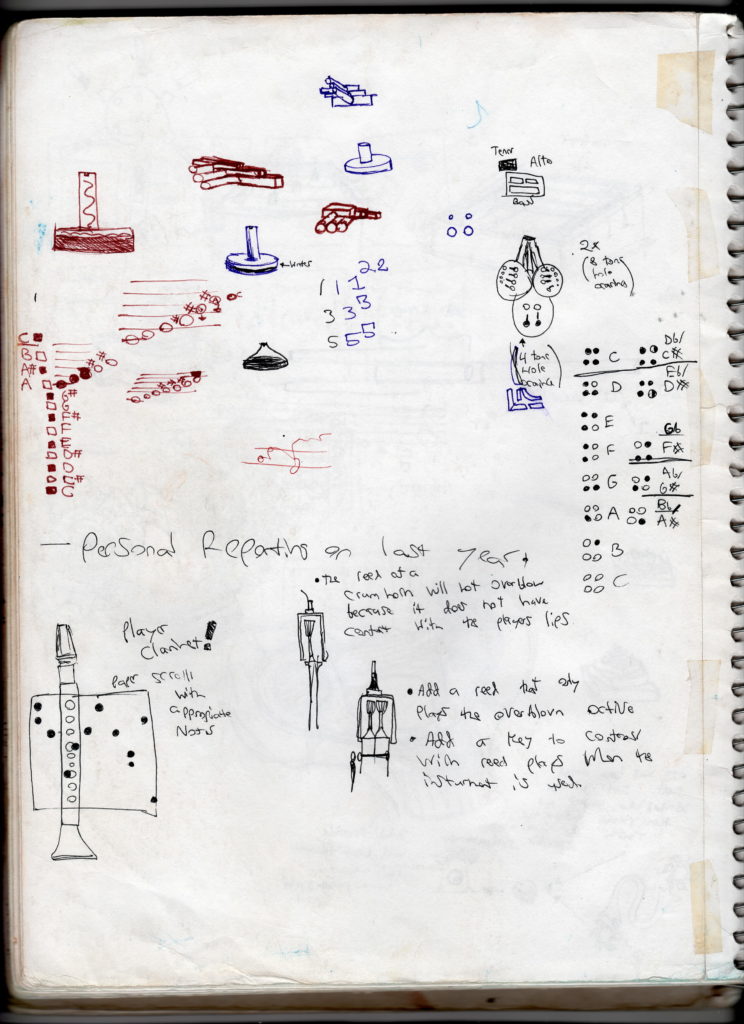 Tenor
Alto
Bass
2x
(8 tone
hole
ocarina)
←Water
1 1 1 2 2
3 3 3
5 5 5
(4 tone
Hole
ocarina)
C
B
A#
A
G#
G
F#
F
E
D#
D
C#
C
C Db/
C#
D Eb/
D#
E
Gb
F F#
G Ab/
G#
A Bb/
A#
B
C
— Personal Reporting on last year
• the reed of a
crumhorn will not overblow
because it does not have
contact with the players lips
Player
Clarinet
paper scrolls
with
appropriate
Notes
• Add a reed that only
plays the overblown octive
• Add a key to control
which reed plays when the
insturment is